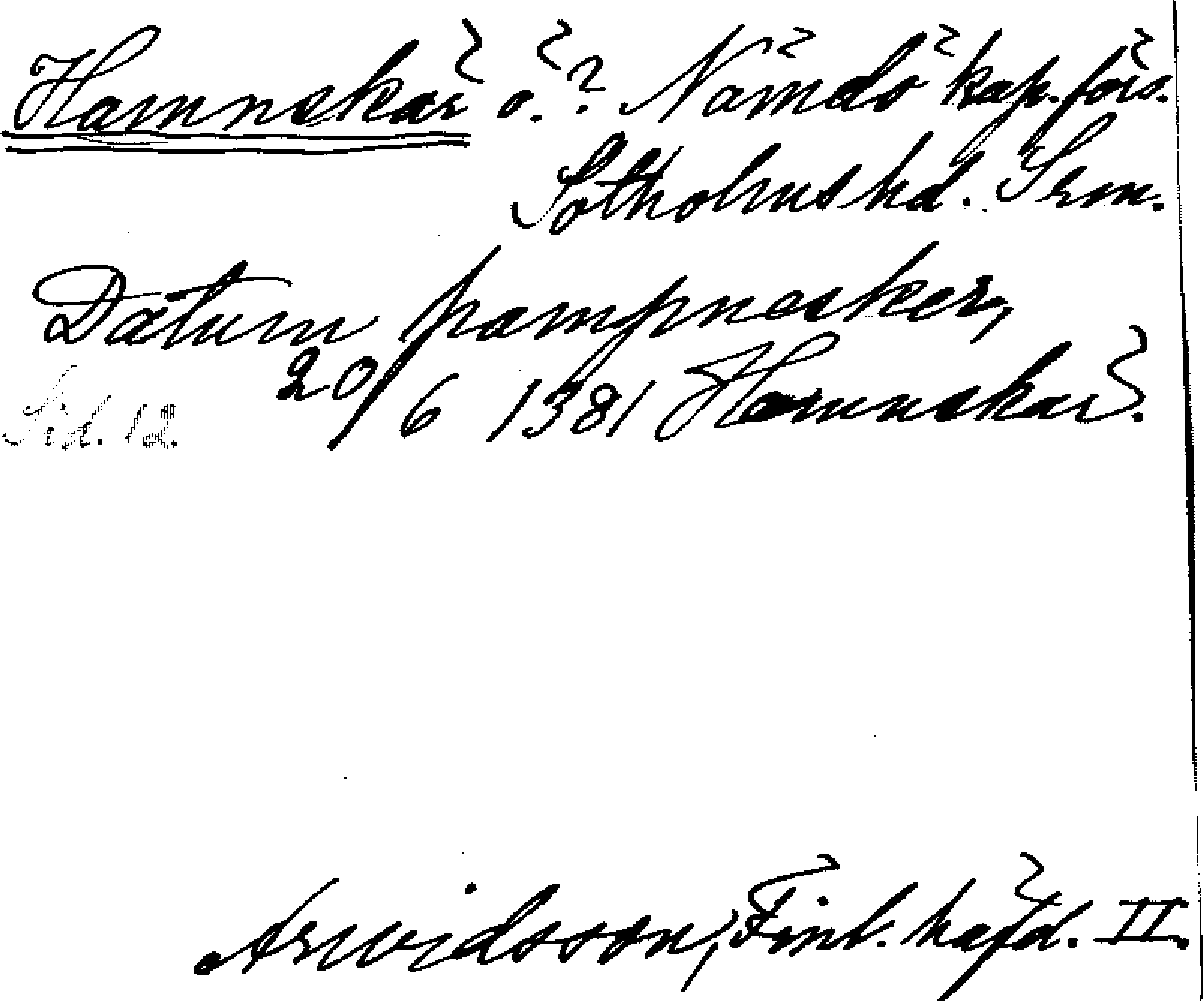 Hamnskär ö.? Nämdö kap. förs.
Sotholms hd. Srm.
Datum hampnesker,
20/6 1381 Hamnskär.
Sid. 12.
Arwidsson, Finl. häfd. II.